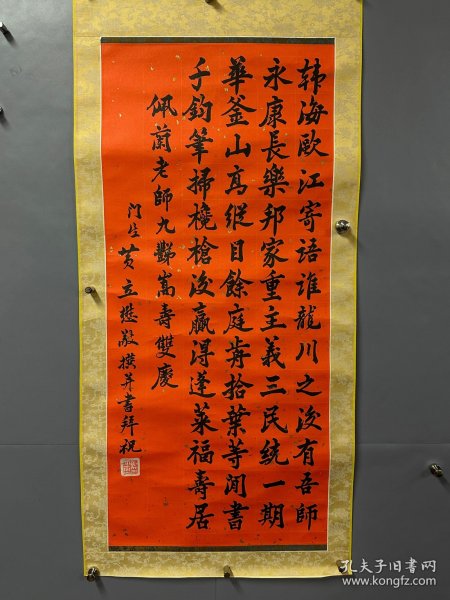 韩海歐江寄語誰龍川之後有吾師
永康長樂邦家重主義三民統一期
華釜山高縱目餘庭肯拾葉等閒書
千鈞筆掃欃槍後贏得蓬萊福壽居
佩蔚老師九豑嵩壽雙慶
門生黄立懋敬撰并書拜祝
孔夫子旧书网
www.kongfz.com